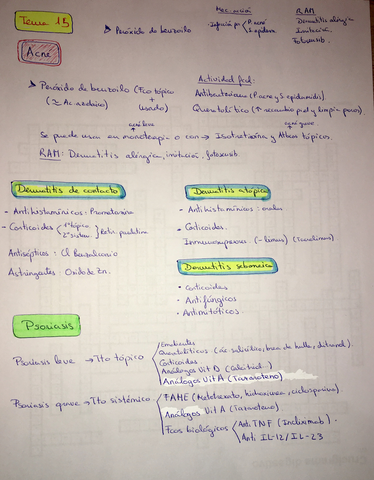 Tema 15
Peróxido de benzoilo
Indicación
Infección por P. acné
S. epiderm.
RAM
Dermatitis alérgica
Irritación
Fotosensib.
Acné
Peróxido de benzoilo (Fco tópico + usado)
(≥ Ac. azelaico)
acné leve
Actividad fcol:
Antibacteriano (P. acne y S. epidermidis)
Queratolítico (↑ recambio piel y limpia poros)
acné grave
Se puede usar en monoterapia o con → Isotretinoína y Atbcos tópicos.
RAM: Dermatitis alérgica, irritación, fotosensib.
Dermatitis de contacto
- Antihistamínicos: Prometazina
- Corticoides 1º tópico
2º sistem
Retir. paulatina
Antisépticos: Cl Benzalconio
Astringentes: Oxido de Zn.
Dermatitis atópica
- Antihistamínicos: orales
- Corticoides.
- Inmunosupresores (-limus) (Tacrolimus)
Dermatitis seborreica
• Corticoides
• Antifúngicos
• Antimitóticos.
Psoriasis
Psoriasis leve → Tto tópico
Emolientes
Queratolíticos (ác. salicílico, brea de hulla, ditranol).
Corticoides
Análogos Vit D (Calcitriol)
Análogos Vit A (Tazaroteno)
Psoriasis grave → Tto sistémico
FAME (Metotrexato, hidroxiurea, ciclosporina)
Análogos Vit A (Tazaroteno)
Fcos biológicos
Anti TNF (Infliximab).
Anti IL-12/IL-23